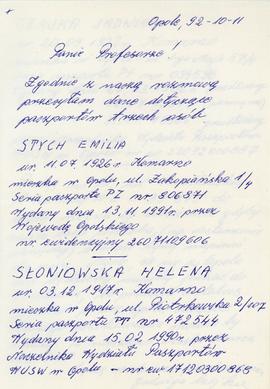 Opole, 92-10-11
Panie Profesorze!
Zgodnie z naszą rozmową
przesyłam dane dotyczące
paszportów trzech osób
STYCH EMILIA
ur. 11.07.1926r Komarno
mieszka w Opolu, ul. Zakopiańska 1/4
Seria paszportu PZ nr 806871
Wydany dnia 13.11.1991r. przez
Wojewodę Opolskiego
nr ewidencyjny 26071109606
SŁONIOWSKA HELENA
ur. 03.12.1917r. Komarno
mieszka w Opolu, ul. Piotrkowska
Seria paszportu nr 472544
Wydany dnia 15.02.1990r. przez
Naczelnika Wydziału Paszportów
WUSW w Opolu – nr ew 17120300868